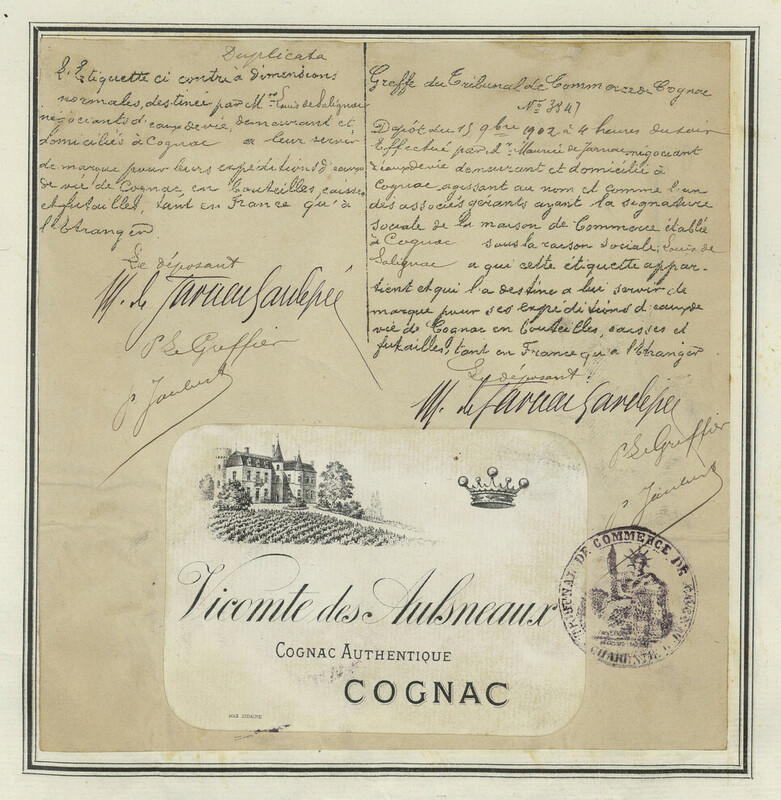 Duplicata
L'Etiquette ci contre à dimensions
normales, destinée par Mrs Louis de Salignac
négociants d'eaux de vie, demeurant et
domiciliés à Cognac a leur servir
de marque pour leurs expéditions d'eaux
de vie de Cognac, en bouteilles, caisses
et futailles, tant en France qu'à
l'Etranger
Le déposant
M. de Jarnac Gardépée
P. Le Greffier
Greffe du Tribunal de Commerce de Cognac
No 3847
Dépôt du 15 9bre 1902 à 4 heures du soir
Effectué par Mr Maurice de Jarnac, négociant
d'eaux de vie demeurant et domicilié à
Cognac, agissant au nom et comme l'un
des associés gérants ayant la signature
sociale de la maison de Commerce établie
à Cognac sous la raison sociale, Louis de
Salignac a qui cette étiquette appar-
tient et qui l'a destine a lui servir de
marque pour ses expéditions d'eaux de
vie de Cognac en bouteilles, caisses et
futailles, tant en France qu'a l'Etranger
Le déposant
M. de Jarnac Gardépée
P. Le Greffier
Vicomte des Aulsneaux
COGNAC AUTHENTIQUE
COGNAC
TRIBUNAL DE COMMERCE DE COGNAC